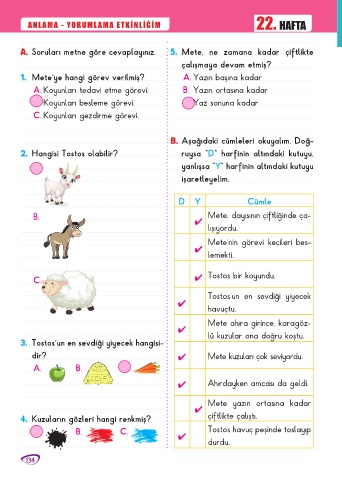 ANLAMA - YORUMLAMA ETKİNLİĞİM
22. HAFTA
A. Soruları metne göre cevaplayınız.
1. Mete'ye hangi görev verilmiş?
A. Koyunları tedavi etme görevi.
Koyunları besleme görevi.
C. Koyunları gezdirme görevi.
2. Hangisi Tostos olabilir?
B.
C.
3. Tostos'un en sevdiği yiyecek hangisi-
dir?
A. B.
4. Kuzuların gözleri hangi renkmiş?
B. C.
134
5. Mete, ne zamana kadar çiftlikte
çalışmaya devam etmiş?
A. Yazın başına kadar
B. Yazın ortasına kadar
Yaz sonuna kadar
B. Aşağıdaki cümleleri okuyalım. Doğ-
ruysa "D" harfinin altındaki kutuyu,
yanlışsa "Y" harfinin altındaki kutuyu
işaretleyelim.
D Y Cümle
Mete, dayısının çiftliğinde ça-
lışıyordu.
Mete'nin görevi keçileri bes-
lemekti.
Tostos bir koyundu.
Tostos'un en sevdiği yiyecek
havuçtu.
Mete ahıra girince, karagöz-
lü kuzular ona doğru koştu.
Mete kuzuları çok seviyordu.
Ahırdayken amcası da geldi.
Mete yazın ortasına kadar
çiftlikte çalıştı.
Tostos havuç peşinde toslayıp
durdu.